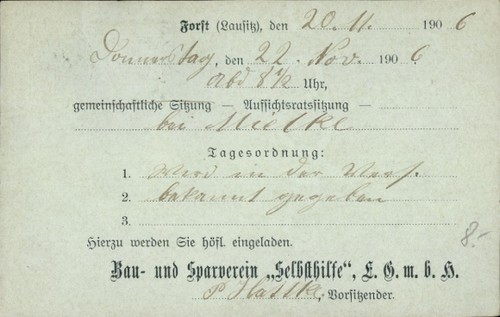 Forst (Lausitz), den 20. 11. 1906
Donnerstag, den 22. Nov. 1906
Abd 8 1/2 Uhr,
gemeinschaftliche Sitzung — Aufsichtsratssitzung —
bei Mielke
Tagesordnung:
1. Wird in der Vers.
2. bekannt gegeben
3.
Hierzu werden Sie höfl. eingeladen.
8.-
Bau- und Sparverein „Selbsthilfe“, E. G. m. b. H.
P Hasske, Vorsitzender.